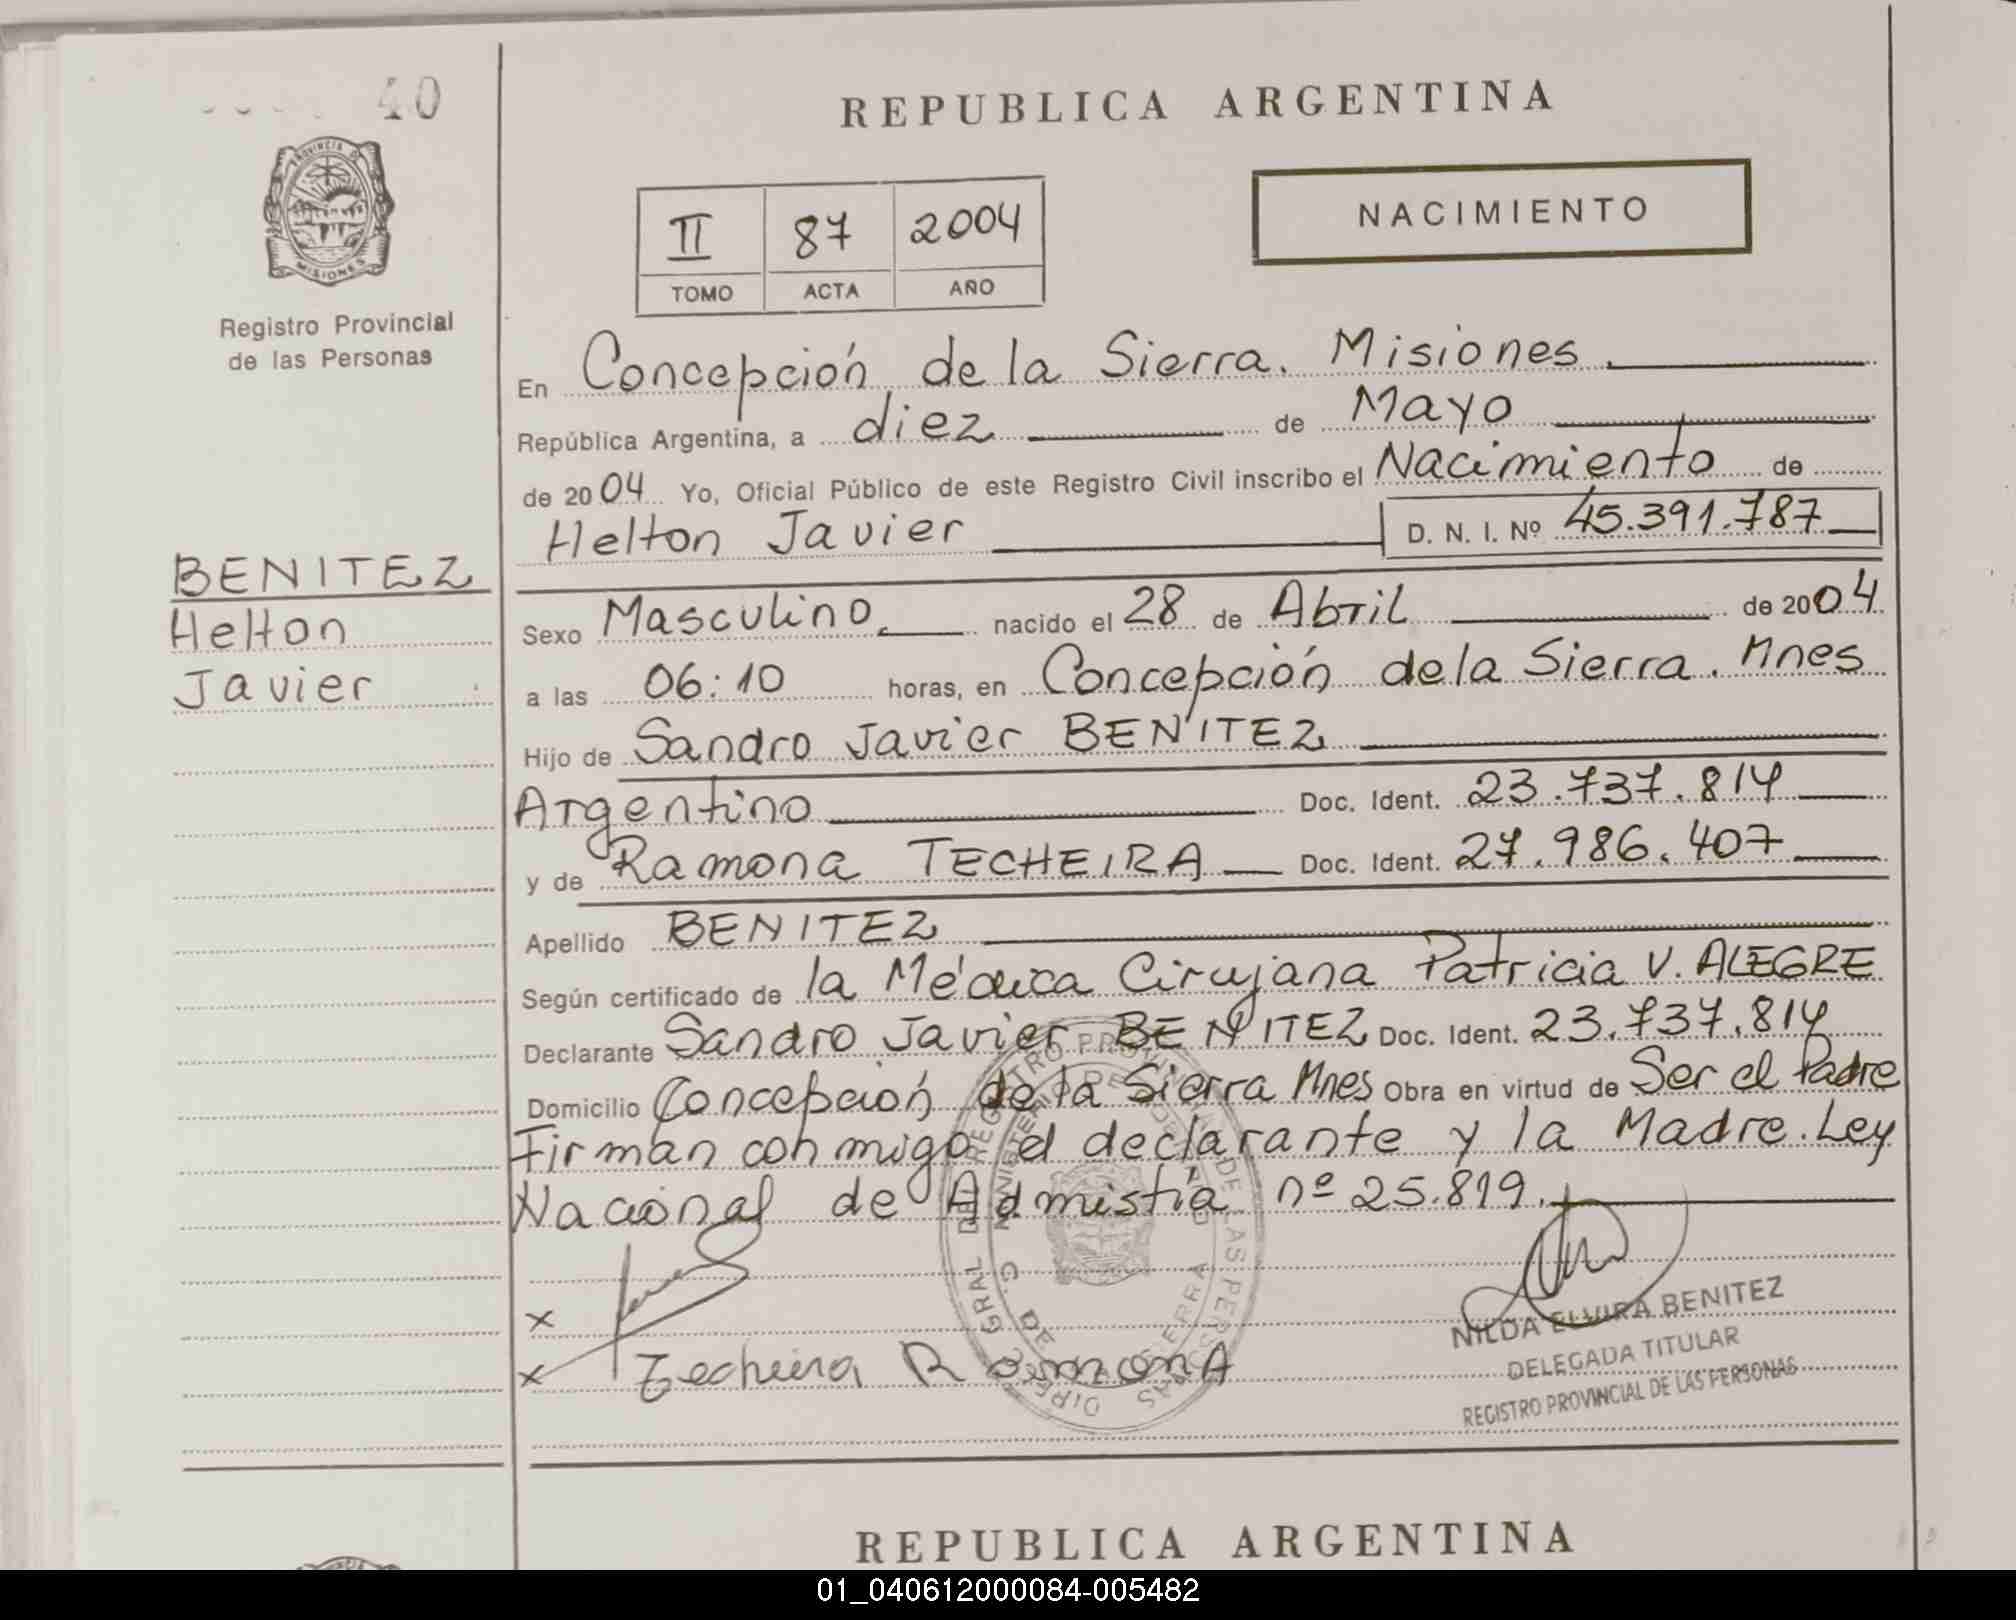 40
REPUBLICA ARGENTINA
PROVINCIA DE
MISIONES
Registro Provincial
de las Personas
NACIMIENTO
II 87 2004
TOMO ACTA AÑO
En Concepción de la Sierra. Misiones.
República Argentina, a diez de Mayo
de 2004 Yo, Oficial Público de este Registro Civil inscribo el Nacimiento de
Helton Javier D. N. I. Nº 45.391.787
BENITEZ
Helton
Javier
Sexo Masculino. nacido el 28 de Abril de 2004
a las 06:10 horas, en Concepción de la Sierra. Mnes
Hijo de Sandro Javier BENITEZ
Argentino Doc. Ident. 23.737.814
y de Ramona TECHEIRA Doc. Ident. 27.986.407
Apellido BENITEZ
Según certificado de la Médica Cirujana Patricia V. ALEGRE
Declarante Sandro Javier BENITEZ Doc. Ident. 23.737.814
Domicilio Concepción de la Sierra Mnes Obra en virtud de Ser el Padre
Firman conmigo el declarante y la Madre. Ley
Nacional de Admistía nº 25.819.
x
x Techeira Ramona
NILDA ELVIRA BENITEZ
DELEGADA TITULAR
REGISTRO PROVINCIAL DE LAS PERSONAS
REPUBLICA ARGENTINA
01_040612000084-005482